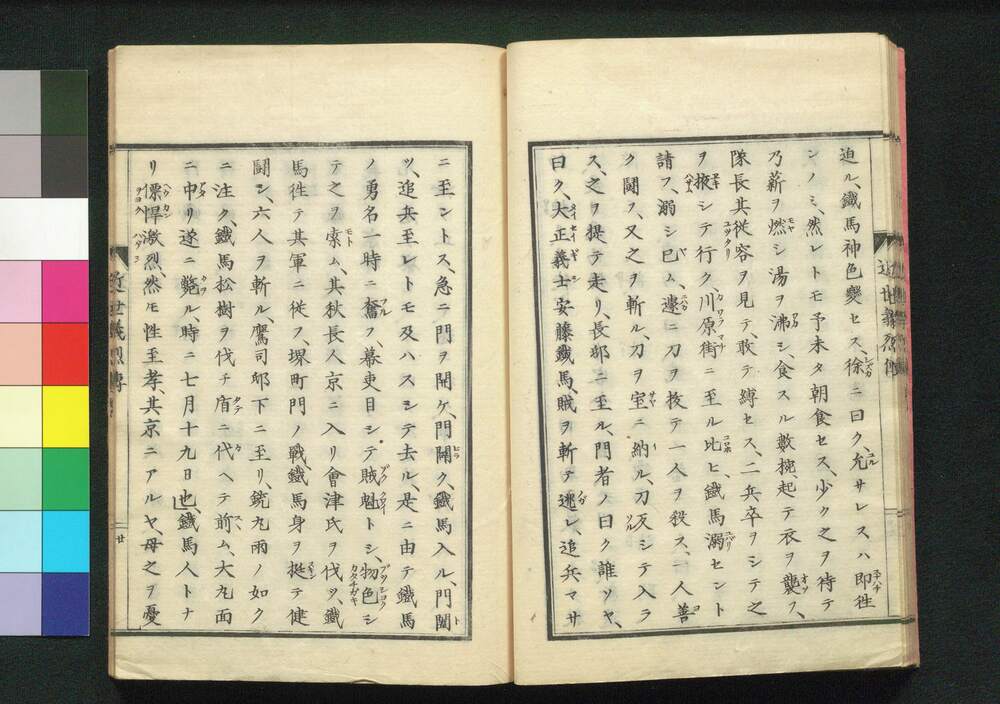 迫ル、鐵馬神色變セス、徐ニ曰ク允サレスハ即徃
シノミ、然レトモ予未タ朝食セス、少ク之ヲ待テ
乃薪ヲ燃シ湯ヲ沸シ、食スル數椀起テ衣ヲ襲フ、
隊長其従容ヲ見テ、敢テ縛セス、二兵卒ヲシテ之
ヲ掖シテ行ク、川原街ニ至ル比ヒ、鐵馬溺セント
請フ、溺シ巳ム、遽ニ刀ヲ抜テ一人ヲ殺ス、一人善
ク闘フ、又之ヲ斬ル、刀ヲ室ニ納ル、刀反シテ入ラ
ス、之ヲ提テ走リ、長邸ニ至ル、門者ノ曰ク誰ソヤ、
曰ク、大正義士安藤鐵馬、賊ヲ斬テ逃レ、追兵マサ
近世義烈傳
ニ至ントス、急ニ門ヲ開ケ、門闢ク、鐵馬入ル、門闔
ツ、追兵至レトモ及ハスシテ去ル、是ニ由テ鐵馬
ノ勇名一時ニ奮フ、幕吏目シテ賊魁トシ、物色シ
テ之ヲ索ム、其秋長人京ニ入リ會津氏ヲ伐ツ、鐵
馬徃テ其軍ニ従フ、堺町門ノ戰、鐵馬身ヲ挺テ健
闘シ、六人ヲ斬ル、鷹司邸下ニ至リ、銃丸雨ノ如ク
ニ注ク、鐵馬松樹ヲ伐チ盾ニ代ヘテ前ム、大丸面
ニ中リ遂ニ斃ル、時ニ七月十九日也、鐵馬人トナ
リ慓悍激烈、然モ性至孝、其京ニアルヤ、母之ヲ憂
近世義烈傳
廿